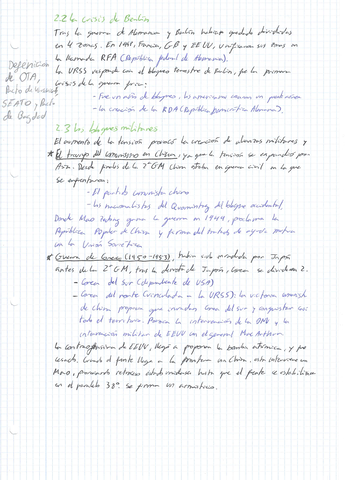 2.2 La crisis de Berlín
Tras la guerra de Alemania y Berlín habían quedado divididas
en 4 zonas. En 1948, Francia, GB y EEUU, unifican sus zonas en
la llamada RFA (República federal de Alemania).
La URSS responde con el bloqueo terrestre de Berlín, fue la primera
crisis de la guerra fría:
- Fue un año de bloqueo, los americanos
- La creación de la RDA (República Democrática Alemana).
Definición
de OTA,
Pacto de Varsovia,
SEATO y Pacto
de Bagdad
2.3 Los bloques militares
El aumento de la tensión provocó la creación de alianzas militares y
* El triunfo del comunismo en China: ya que la tensión se expandió por
Asia. Desde finales de la 2ª GM China estaba en guerra civil en la que
se enfrentaron:
- El partido comunista chino
- Los nacionalistas del Quomintang del bloque occidental.
Donde Mao Zedong gana la guerra en 1949, proclama la
República Popular de China y firman del tratado de ayuda mutua
con la Unión Soviética
* Guerra de Corea (1950-1953), había sido invadida por Japón
antes de la 2ª GM, tras la derrota de Japón, Corea se dividió en 2.
- Corea del sur (dependiente de USA)
- Corea del norte (vinculada a la URSS): la victoria comunista
de china propone que invadan Corea del sur y conquistar casi
todo el territorio. Provoca la intervención de la ONU y la
intervención militar de EEUU con el general Mac Arthur.
La contraofensiva de EEUU, llegó a proponer la bomba atómica, y fue
cesado. Cuando el frente llega a la frontera con China, esta interviene con
Mao, provocando retroceso hasta que el frente se estabiliza
en el paralelo 38º. Se firma un armisticio.